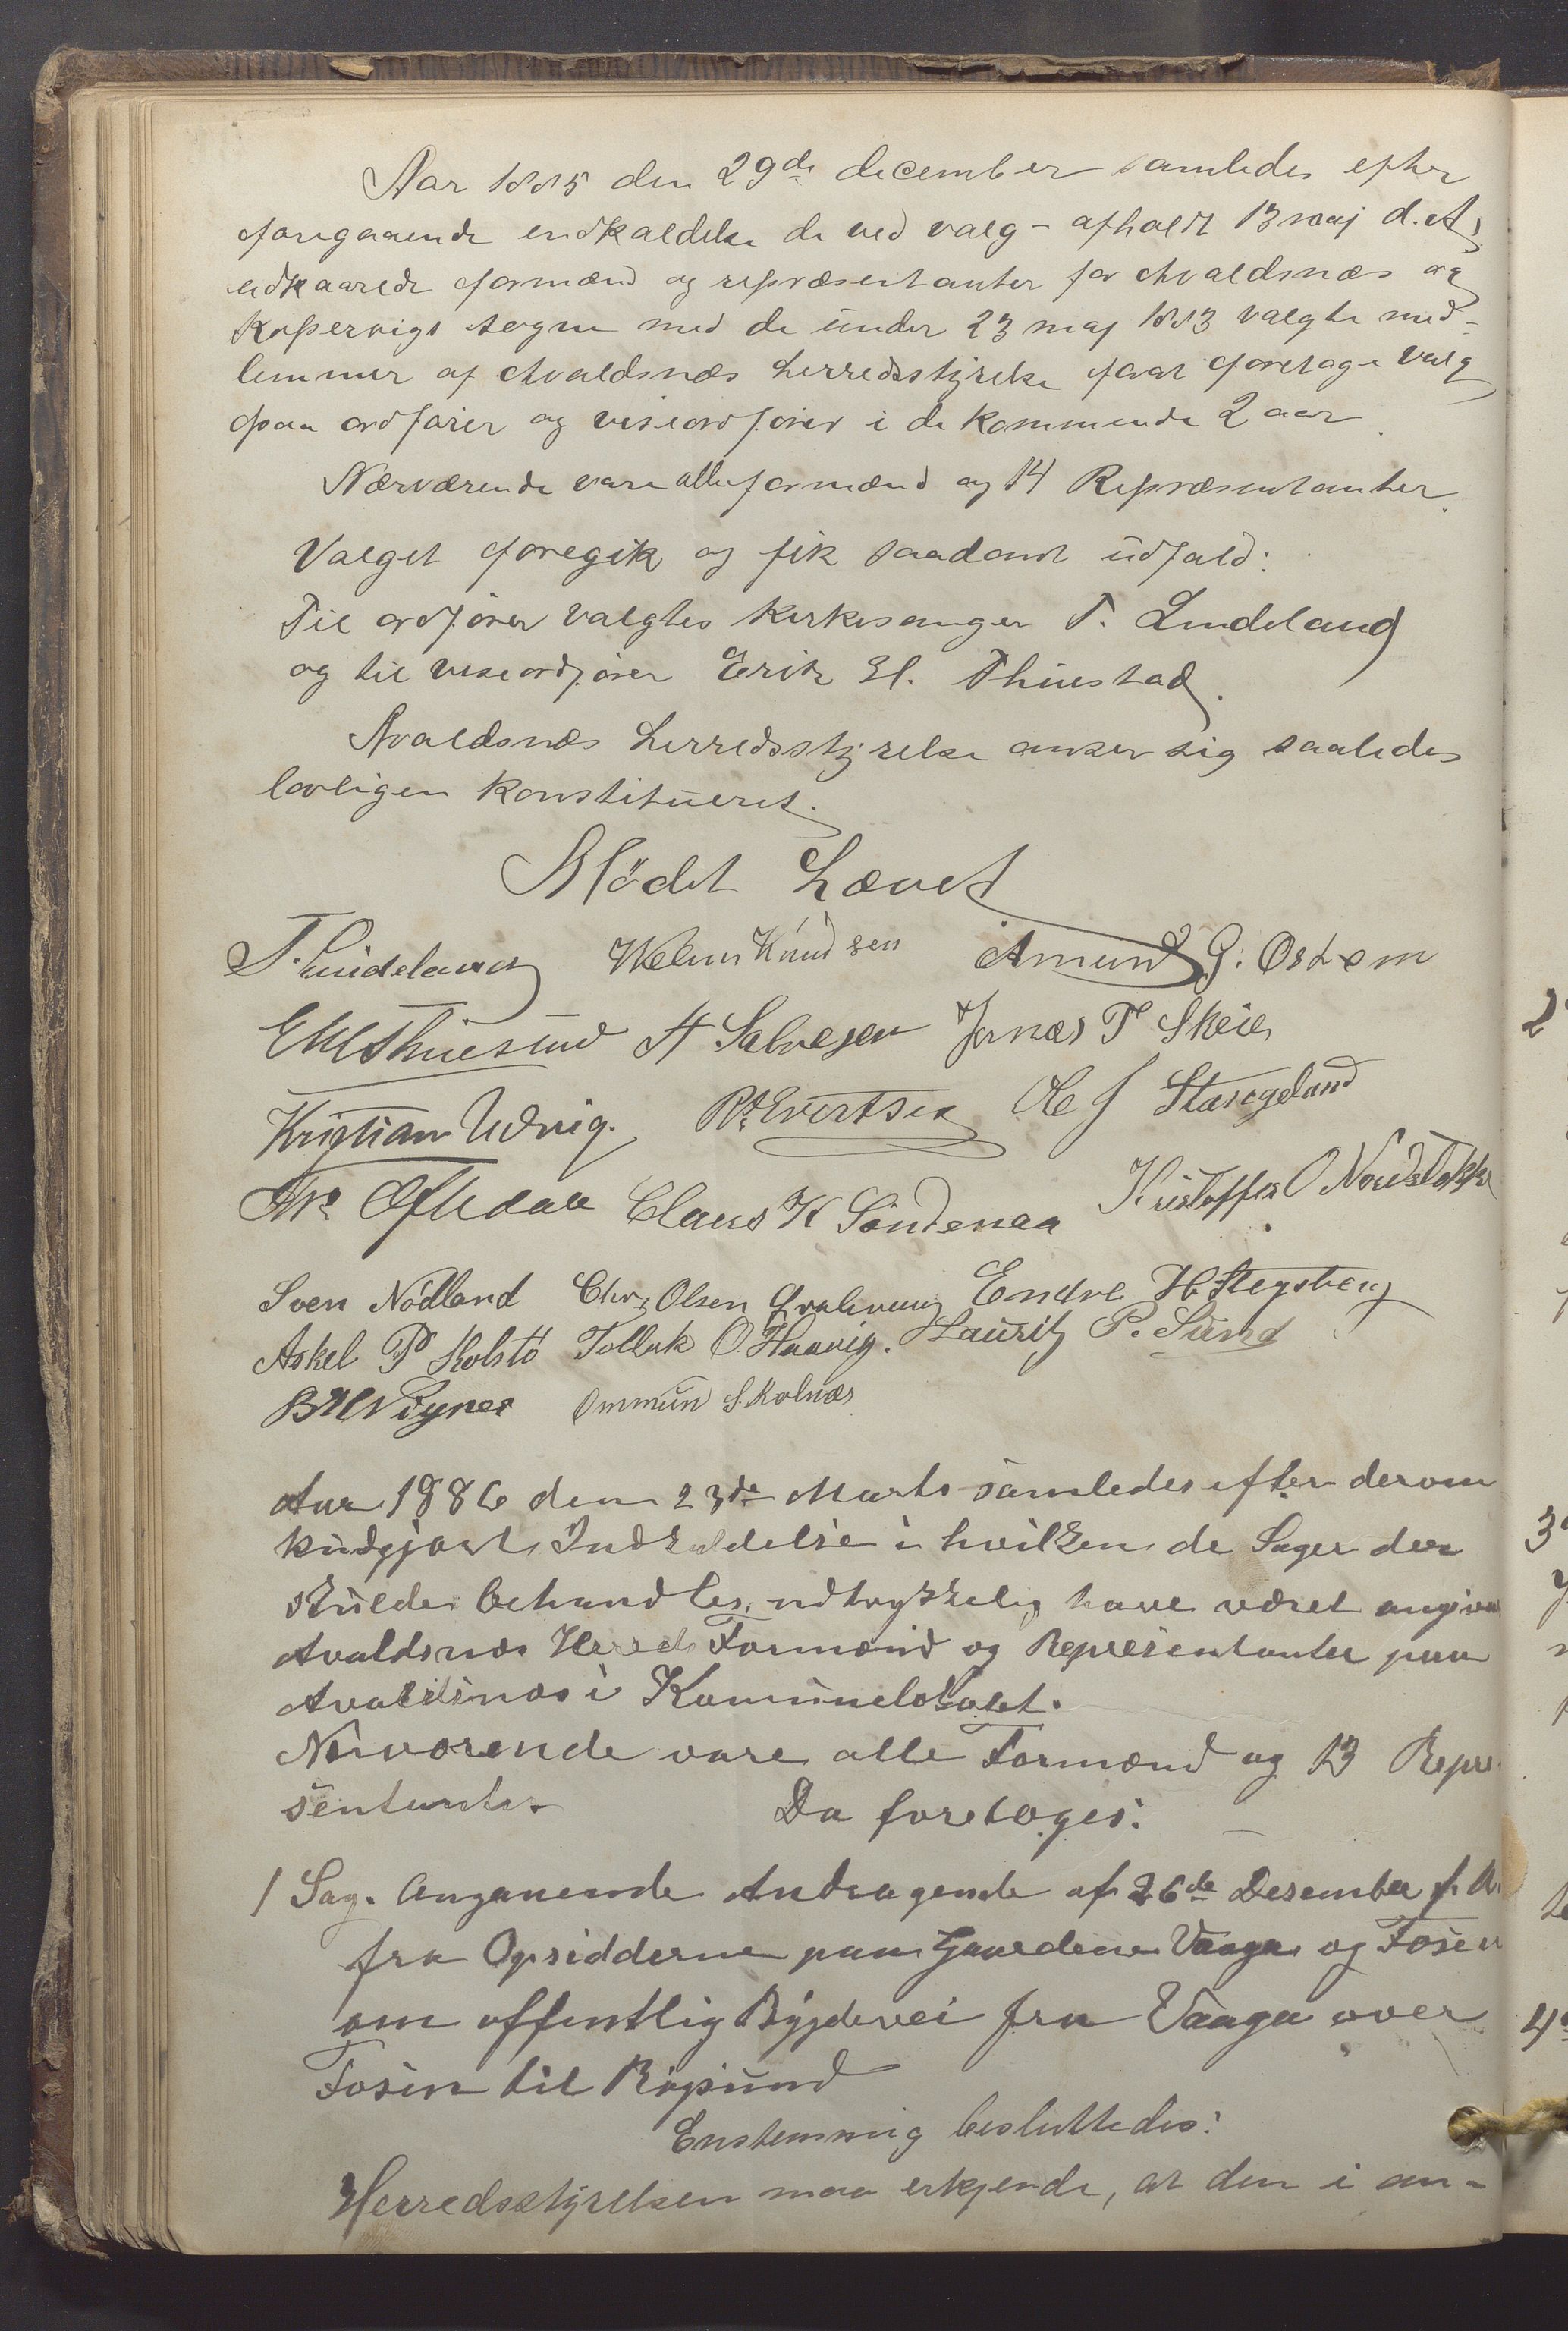 Aar 1885 den 29de december samledes efter
foregaaende indkaldelse de ved valg - afholdt 13 maj d. A.
udkaarede formænd og repræsentanter for Avaldsnæs og
Kopervigs sogne med de under 23 maj 1883 valgte med-
lemmer af Avaldsnæs herredsstyrelse forat foretage valg
paa ordfører og viseordfører i de kommende 2 aar.
Nærværende vare alle formænd og 14 Repræsentanter.
Valget foregik og fik saadant udfald:
Til ordfører valgtes Kirkesanger T. Lindeland
og til viseordfører Erik H. Thuestad.
Avaldsnæs herredsstyrelse anser sig saaledes
lovligen konstitueret.
Mödet hævet
T. Lindeland Knudsen Amund G. Østrem
E H Thuestad H Salvesen Jonas T Skeie
Kristian Udvig. Evertsen Ole J Stasogeland
Oftedal Claus K Søndenaa Kristoffer O Nordstokke
Sven Nödland Chr. Olsen Endre H.
Askel P Kolstö Tollak O. Haavig. Lauritz P. Sund
B H Ommun S. Kolnæs
Aar 1886 den 23de Marts samledes efter derom
kundgjort Indkaldelse i hvilken de Sager der
skulde behandles, udtrykkelig have været angivet
Avaldsnæs Herreds Formænd og Repræsentanter paa
Avaldsnæs i Komunelokalet.
Nærværende vare alle Formænd og 13 Repre-
sentanter. Da foretoges:
1 Sag. Angaaende Andragende af 26de Desember f. A.
fra Opsidderne paa Gaardene Vaaga og Fosen
om offentlig Bygdevei fra Vaaga over
Fosen til Bögsund
Enstemmig besluttedes:
Herredsstyrelsen maa erkjende, at den i an-